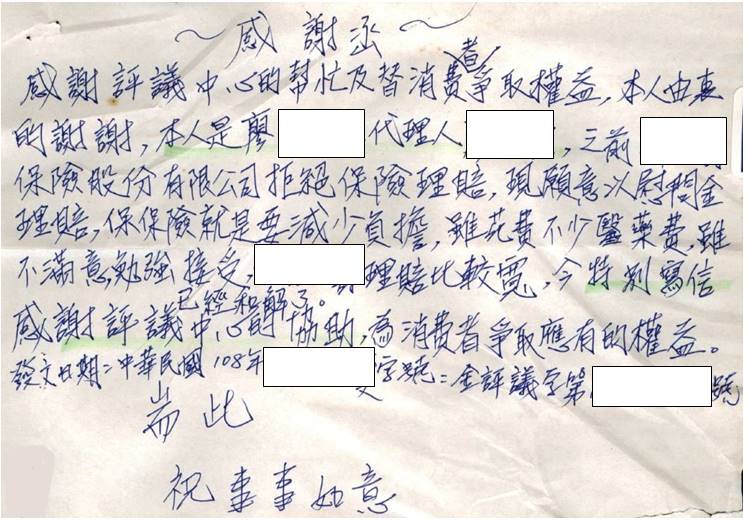 ～感謝函～
感謝評議中心的幫忙及替消費者爭取權益，本人由衷
的謝謝，本人是廖 代理人， ，之前
保險股份有限公司拒絕保險理賠，現願意以慰問金
理賠，保保險就是要減少負擔，雖花費不少醫藥費，雖
不滿意勉強接受， 理賠比較寬，今特別寫信
已經和解了。
感謝評議中心的協助，為消費者爭取應有的權益。
發文日期：中華民國108年 字號：金評議字第 號
耑此
祝事事如意